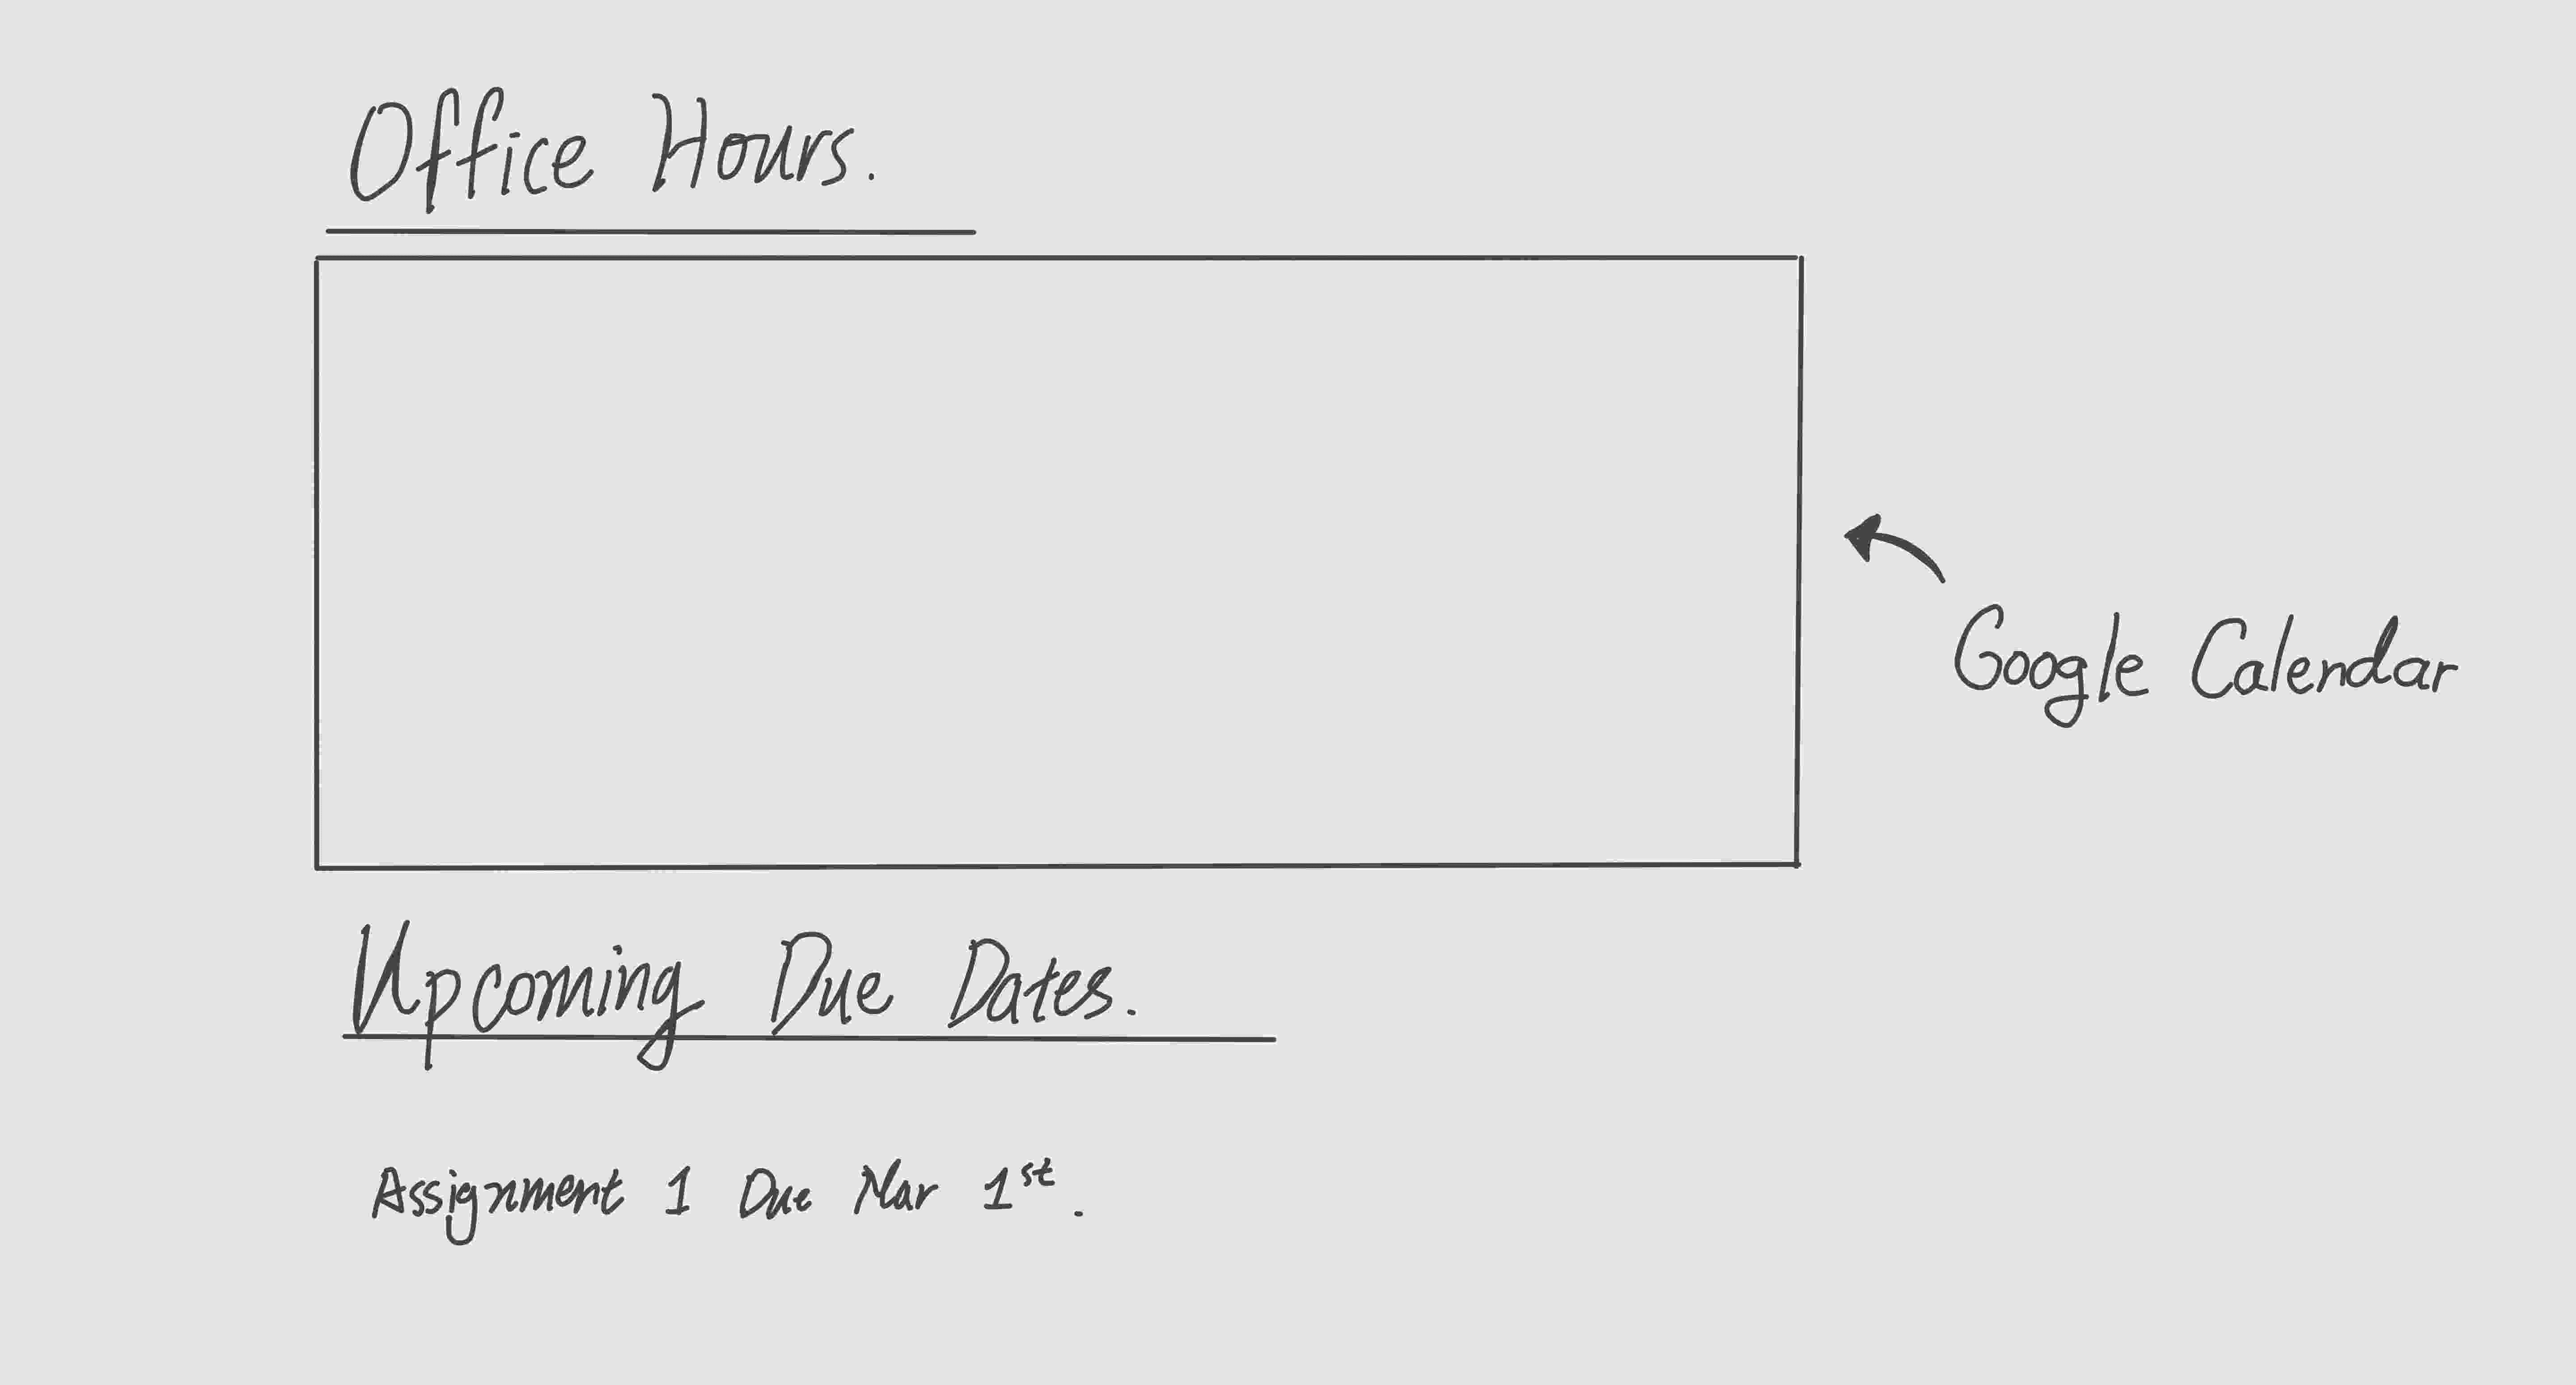 Office Hours.
Google Calendar
Upcoming Due Dates.
Assignment 1 Due Mar 1st.